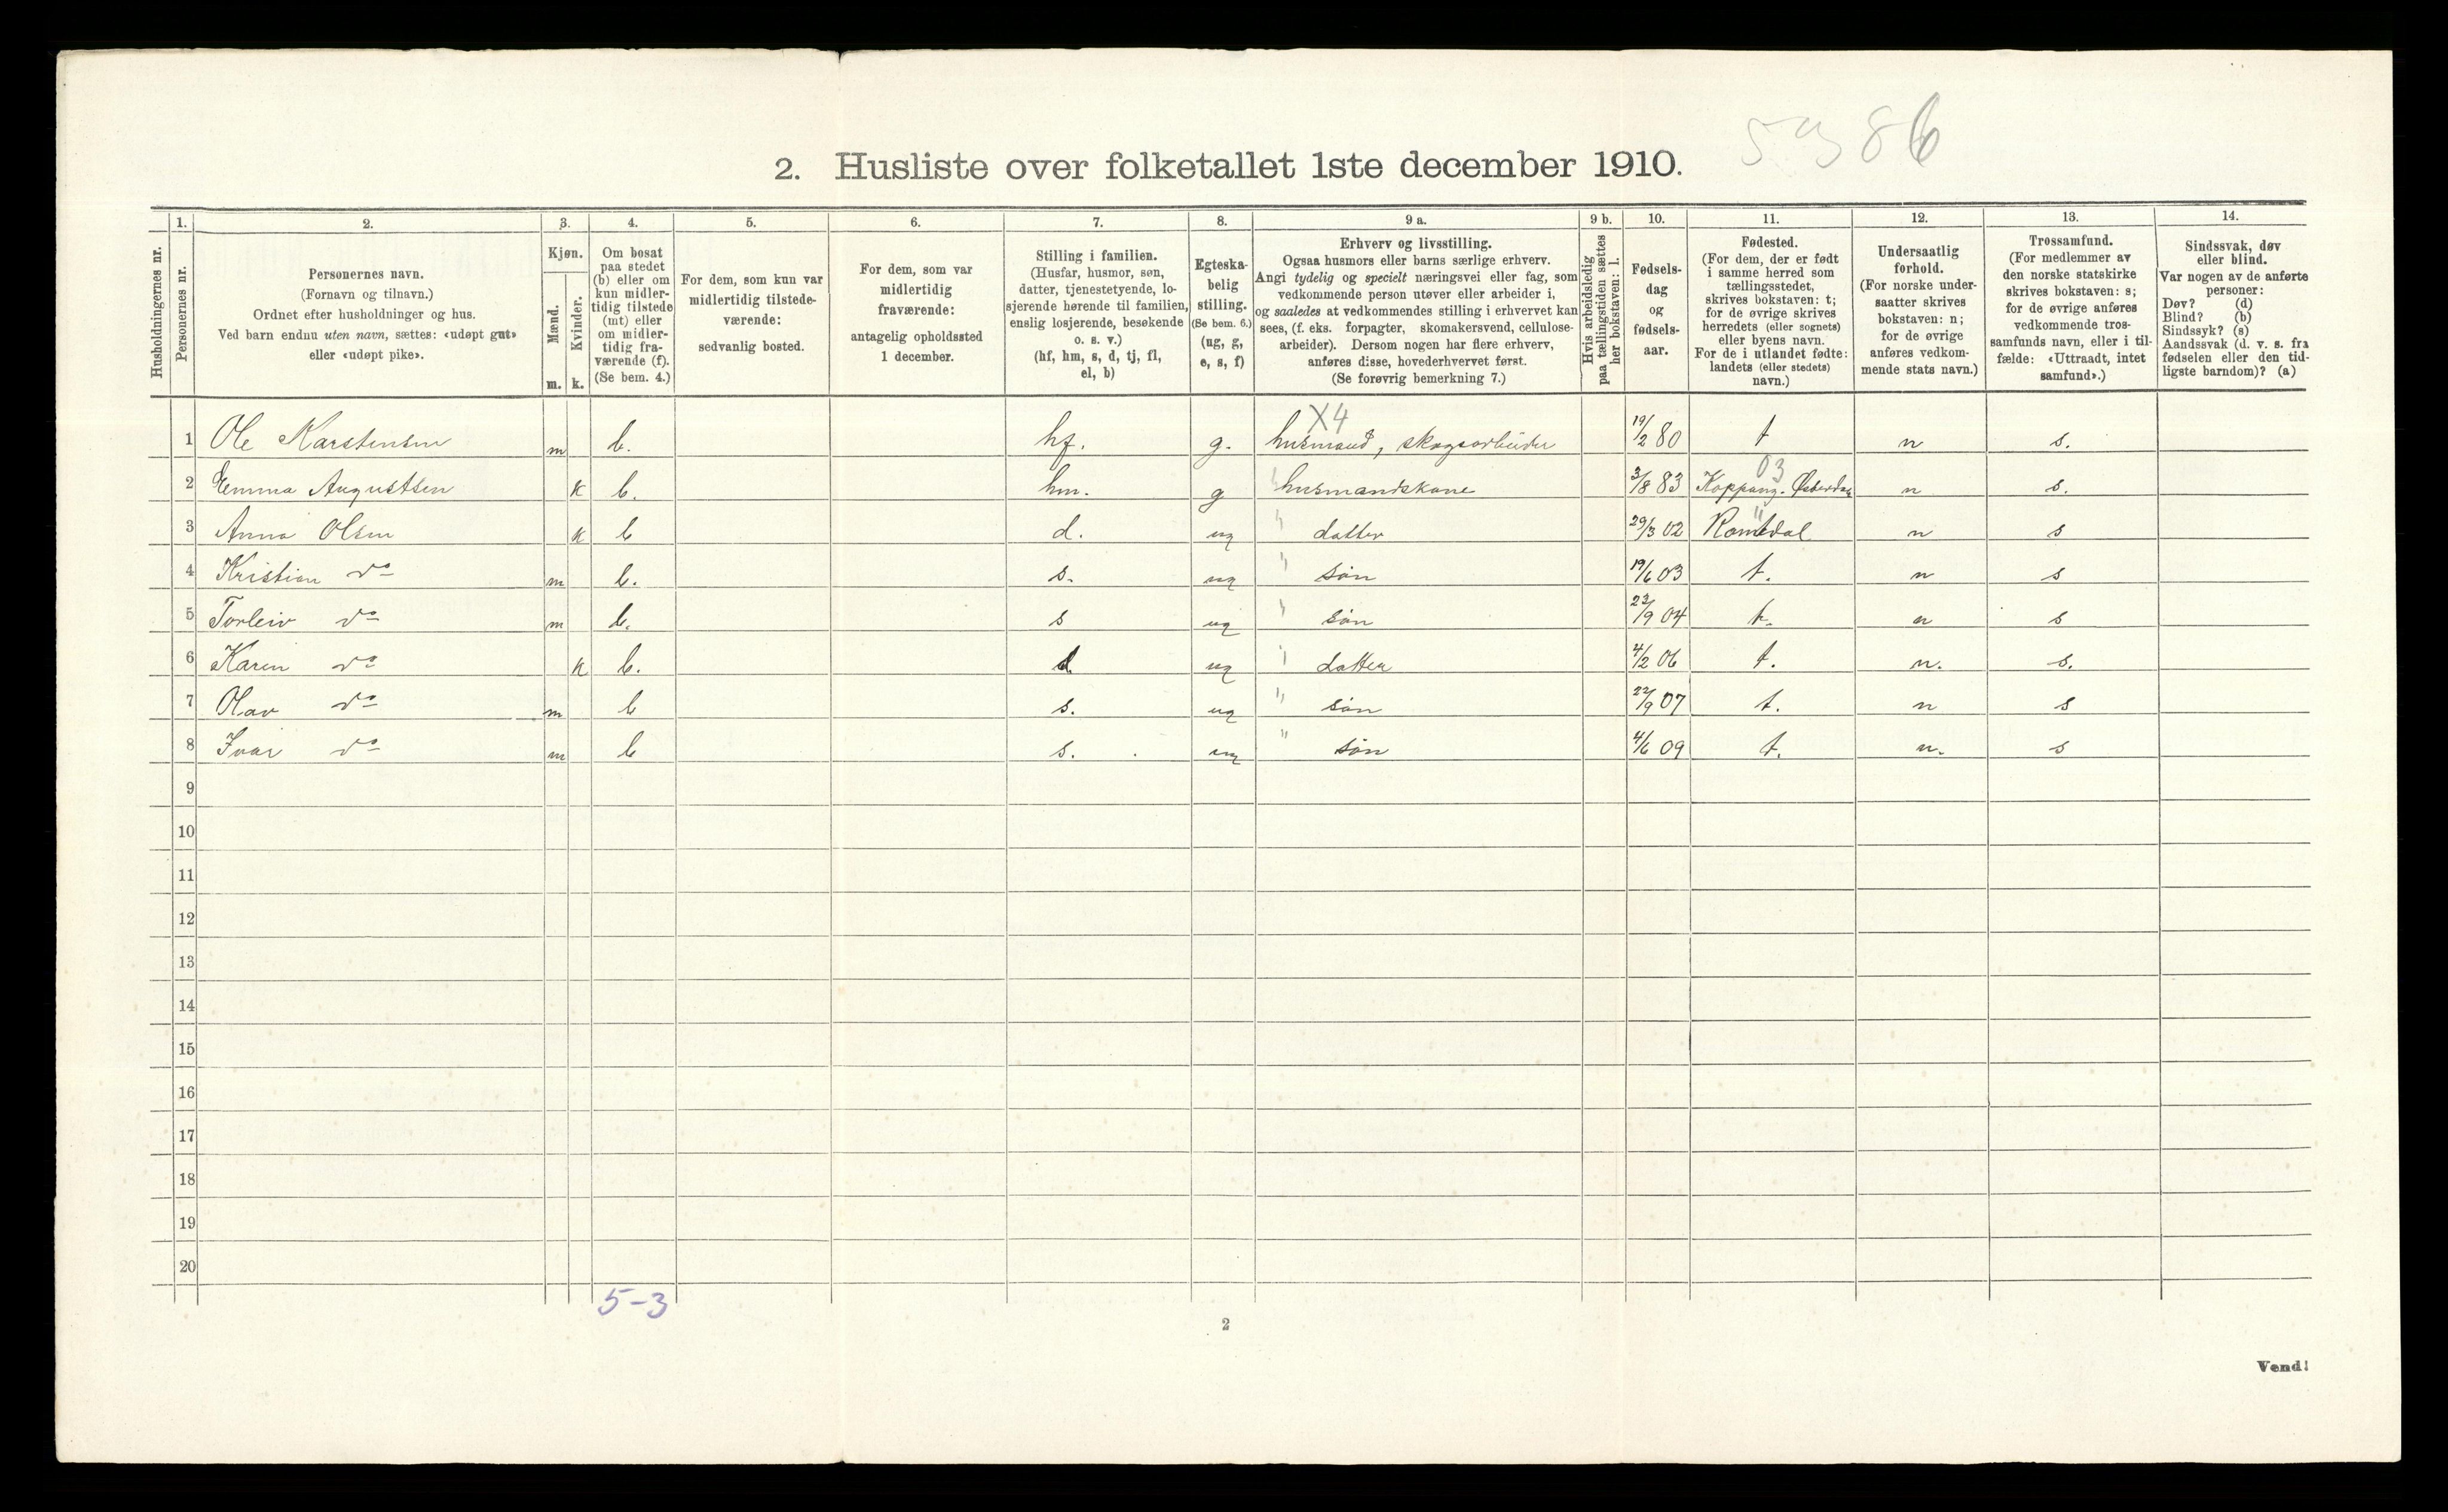 5386
2. Husliste over folketallet 1ste december 1910.
1. 2. 3. 4. 5. 6. 7. 8. 9 a. 9 b. 10. 11. 12. 13. 14.
Husholdningernes nr.
Personernes nr.
Personernes navn.
(Fornavn og tilnavn.)
Ordnet efter husholdninger og hus.
Ved barn endnu uten navn, sættes: «udøpt gut»
eller «udøpt pike».
Kjøn.
Mænd.
Kvinder.
m. k.
Om bosat
paa stedet
(b) eller om
kun midler-
tidig tilstede
(mt) eller
om midler-
tidig fra-
værende (f).
(Se bem. 4.)
For dem, som kun var
midlertidig tilstede-
værende:
sedvanlig bosted.
For dem, som var
midlertidig
fraværende:
antagelig opholdssted
1 december.
Stilling i familien.
(Husfar, husmor, søn,
datter, tjenestetyende, lo-
sjerende hørende til familien,
enslig losjerende, besøkende
o. s. v.)
(hf, hm, s, d, tj, fl,
el, b)
Egteska-
belig
stilling.
(Se bem. 6.)
(ug, g,
e, s, f)
Erhverv og livsstilling.
Ogsaa husmors eller barns særlige erhverv.
Angi tydelig og specielt næringsvei eller fag, som
vedkommende person utøver eller arbeider i,
og saaledes at vedkommendes stilling i erhvervet kan
sees, (f. eks. forpagter, skomakersvend, cellulose-
arbeider). Dersom nogen har flere erhverv,
anføres disse, hovederhvervet først.
(Se forøvrig bemerkning 7.)
Hvis arbeidsledig
paa tællingstiden sættes
her bokstaven: l.
Fødsels-
dag
og
fødsels-
aar.
Fødested.
(For dem, der er født
i samme herred som
tællingsstedet,
skrives bokstaven: t;
for de øvrige skrives
herredets (eller sognets)
eller byens navn.
For de i utlandet fødte:
landets (eller stedets)
navn.)
Undersaatlig
forhold.
(For norske under-
saatter skrives
bokstaven: n;
for de øvrige
anføres vedkom-
mende stats navn.)
Trossamfund.
(For medlemmer av
den norske statskirke
skrives bokstaven: s;
for de øvrige anføres
vedkommende tros-
samfunds navn, eller i til-
fælde: «Uttraadt, intet
samfund».)
Sindssvak, døv
eller blind.
Var nogen av de anførte
personer:
Døv? (d)
Blind? (b)
Sindssyk? (s)
Aandssvak (d. v. s. fra
fødselen eller den tid-
ligste barndom)? (a)
X4
1 Ole Karstensen m b. hf. g. husmand, skogsarbeider 19/2 80 t n s.
03
2 Emma Augustsen k b. hm. g husmandskone 3/8 83 Koppang. Østerdal n s.
3 Anna Olsen k b d. ug " datter 29/3 02 Romedal n s
4 Kristian do m b. s. ug " søn 19/6 03 t. n s
5 Torleiv do m b. s ug " søn 23/9 04 t. n s
6 Karen do k b. d ug " datter 4/2 06 t. n. s.
7 Olav do m b s. ug " søn 22/9 07 t. n s
8 Ivar do m b s. ug " søn 4/6 09 t. n. s
9
10
11
12
13
14
15
16
17
18
19
20
5-3
2
Vend!